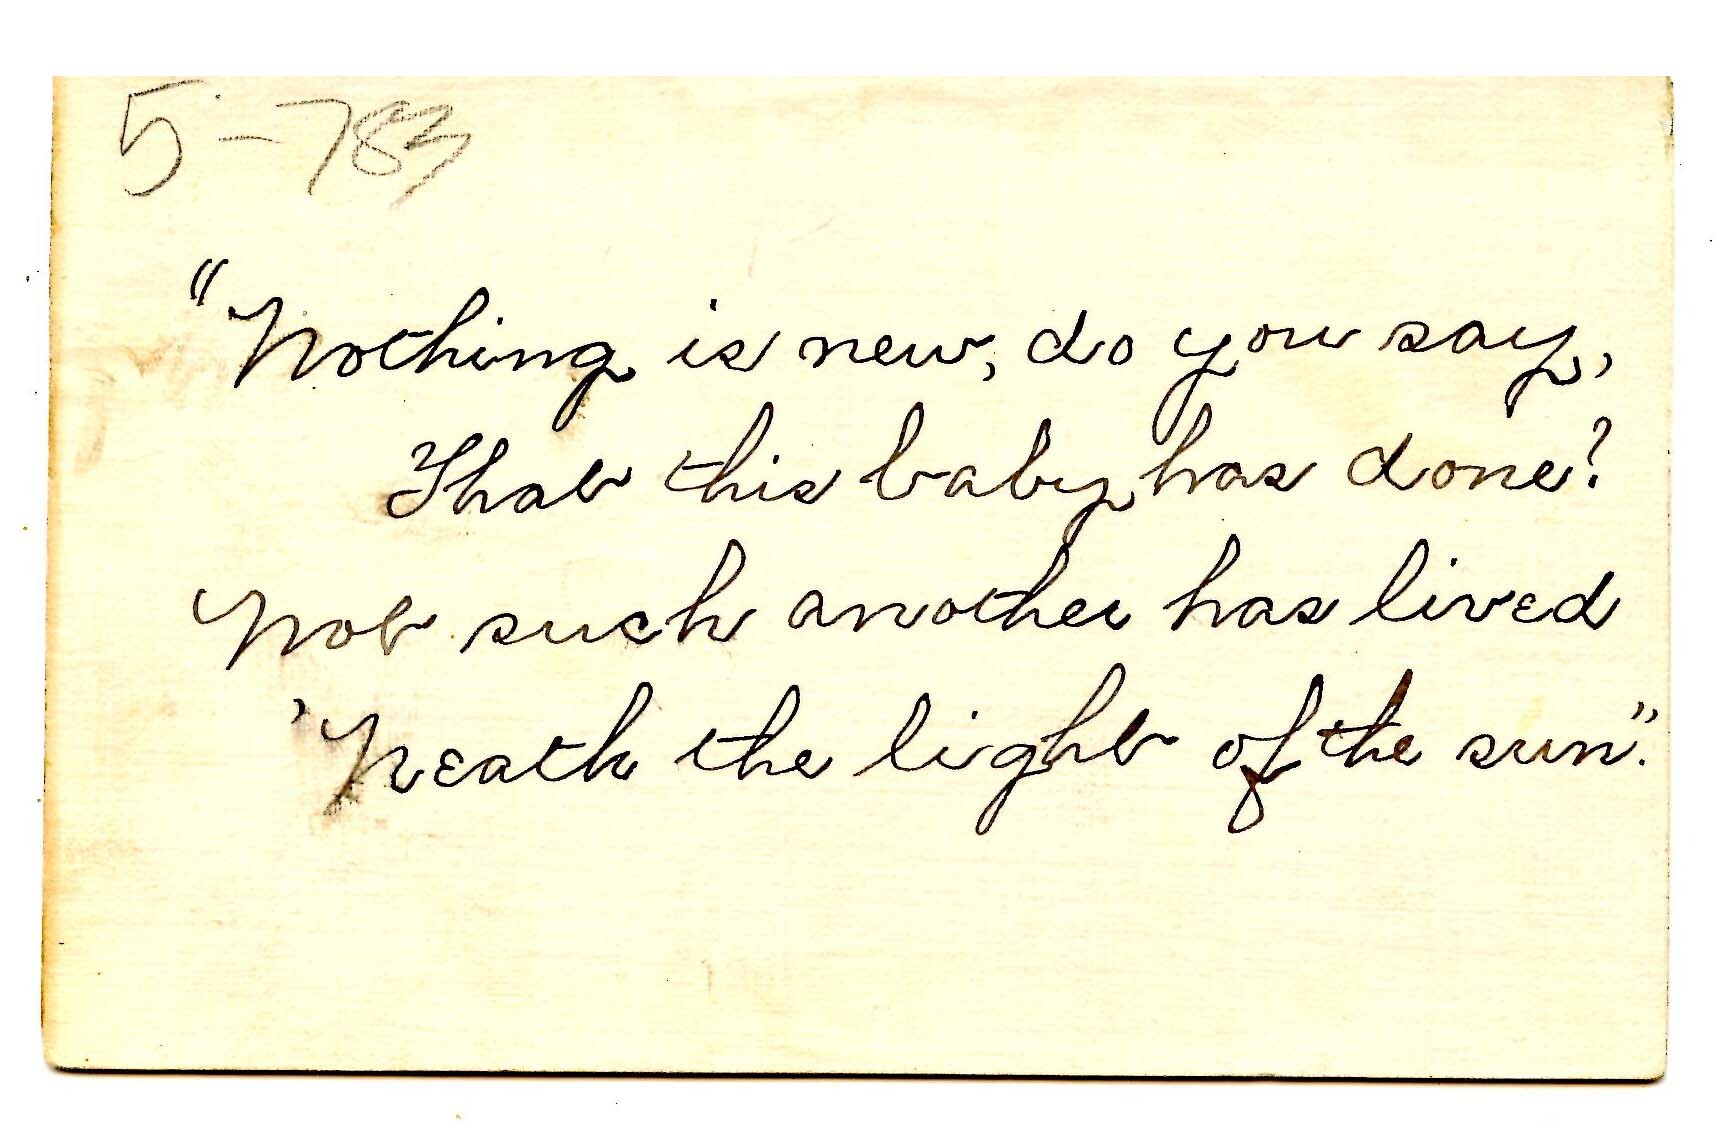 5-783
"Nothing is new, do you say,
That this baby has done?
Not such another has lived
'Neath the light of the sun."